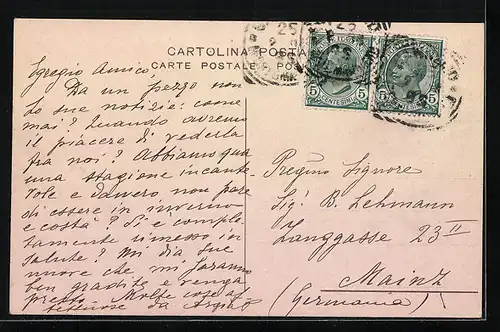 CARTOLINA POSTA
CARTE POSTALE
POSTE ITALIANE
5 CENTESIMI 5
5 CENTESIMI 5
Egregio Amico,
Da un pezzo non
ho sue notizie: come
mai? Quando avremo
il piacere di vederla
fra noi? Abbiamo qua
una stagione incante-
vole e davvero non pare
di essere in inverno
e costà? Si è comple-
tamente rimesso in
salute? Mi dia sue
nuove che mi saranno
ben gradite e venga
presto. Molte cose af-
fettuose da
Pregmo Signore
Sig. B. Lehmann
Langgasse 23 II
Mainz
(Germania)